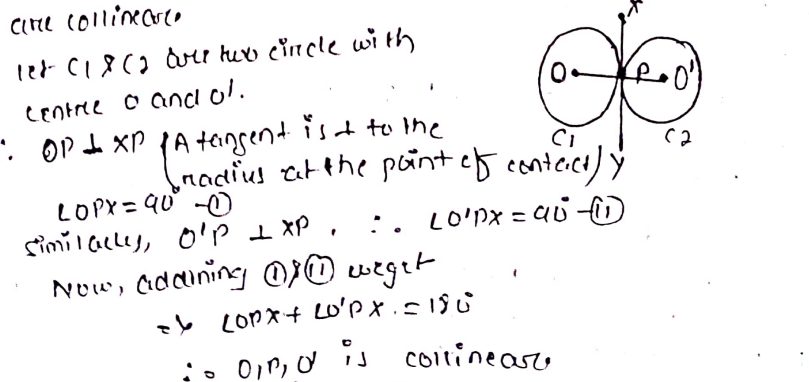 are collinear
let C1 & C2 are two circle with
centre O and O'.
∴ OP ⊥ XP (A tangent is ⊥ to the
radius at the point of contact)
∠OPX = 90° -(I)
Similarly, O'P ⊥ XP , ∴ ∠O'PX = 90° -(II)
Now, addining (I) & (II) we get
=> ∠OPX + ∠O'PX = 180°
∴ O, P, O' is collinear
X
O P O'
C1 C2
Y